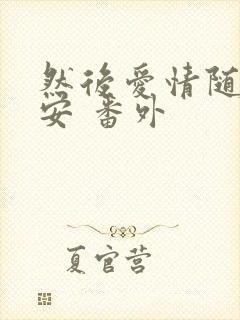 然後愛情随
安 番外
夏官营